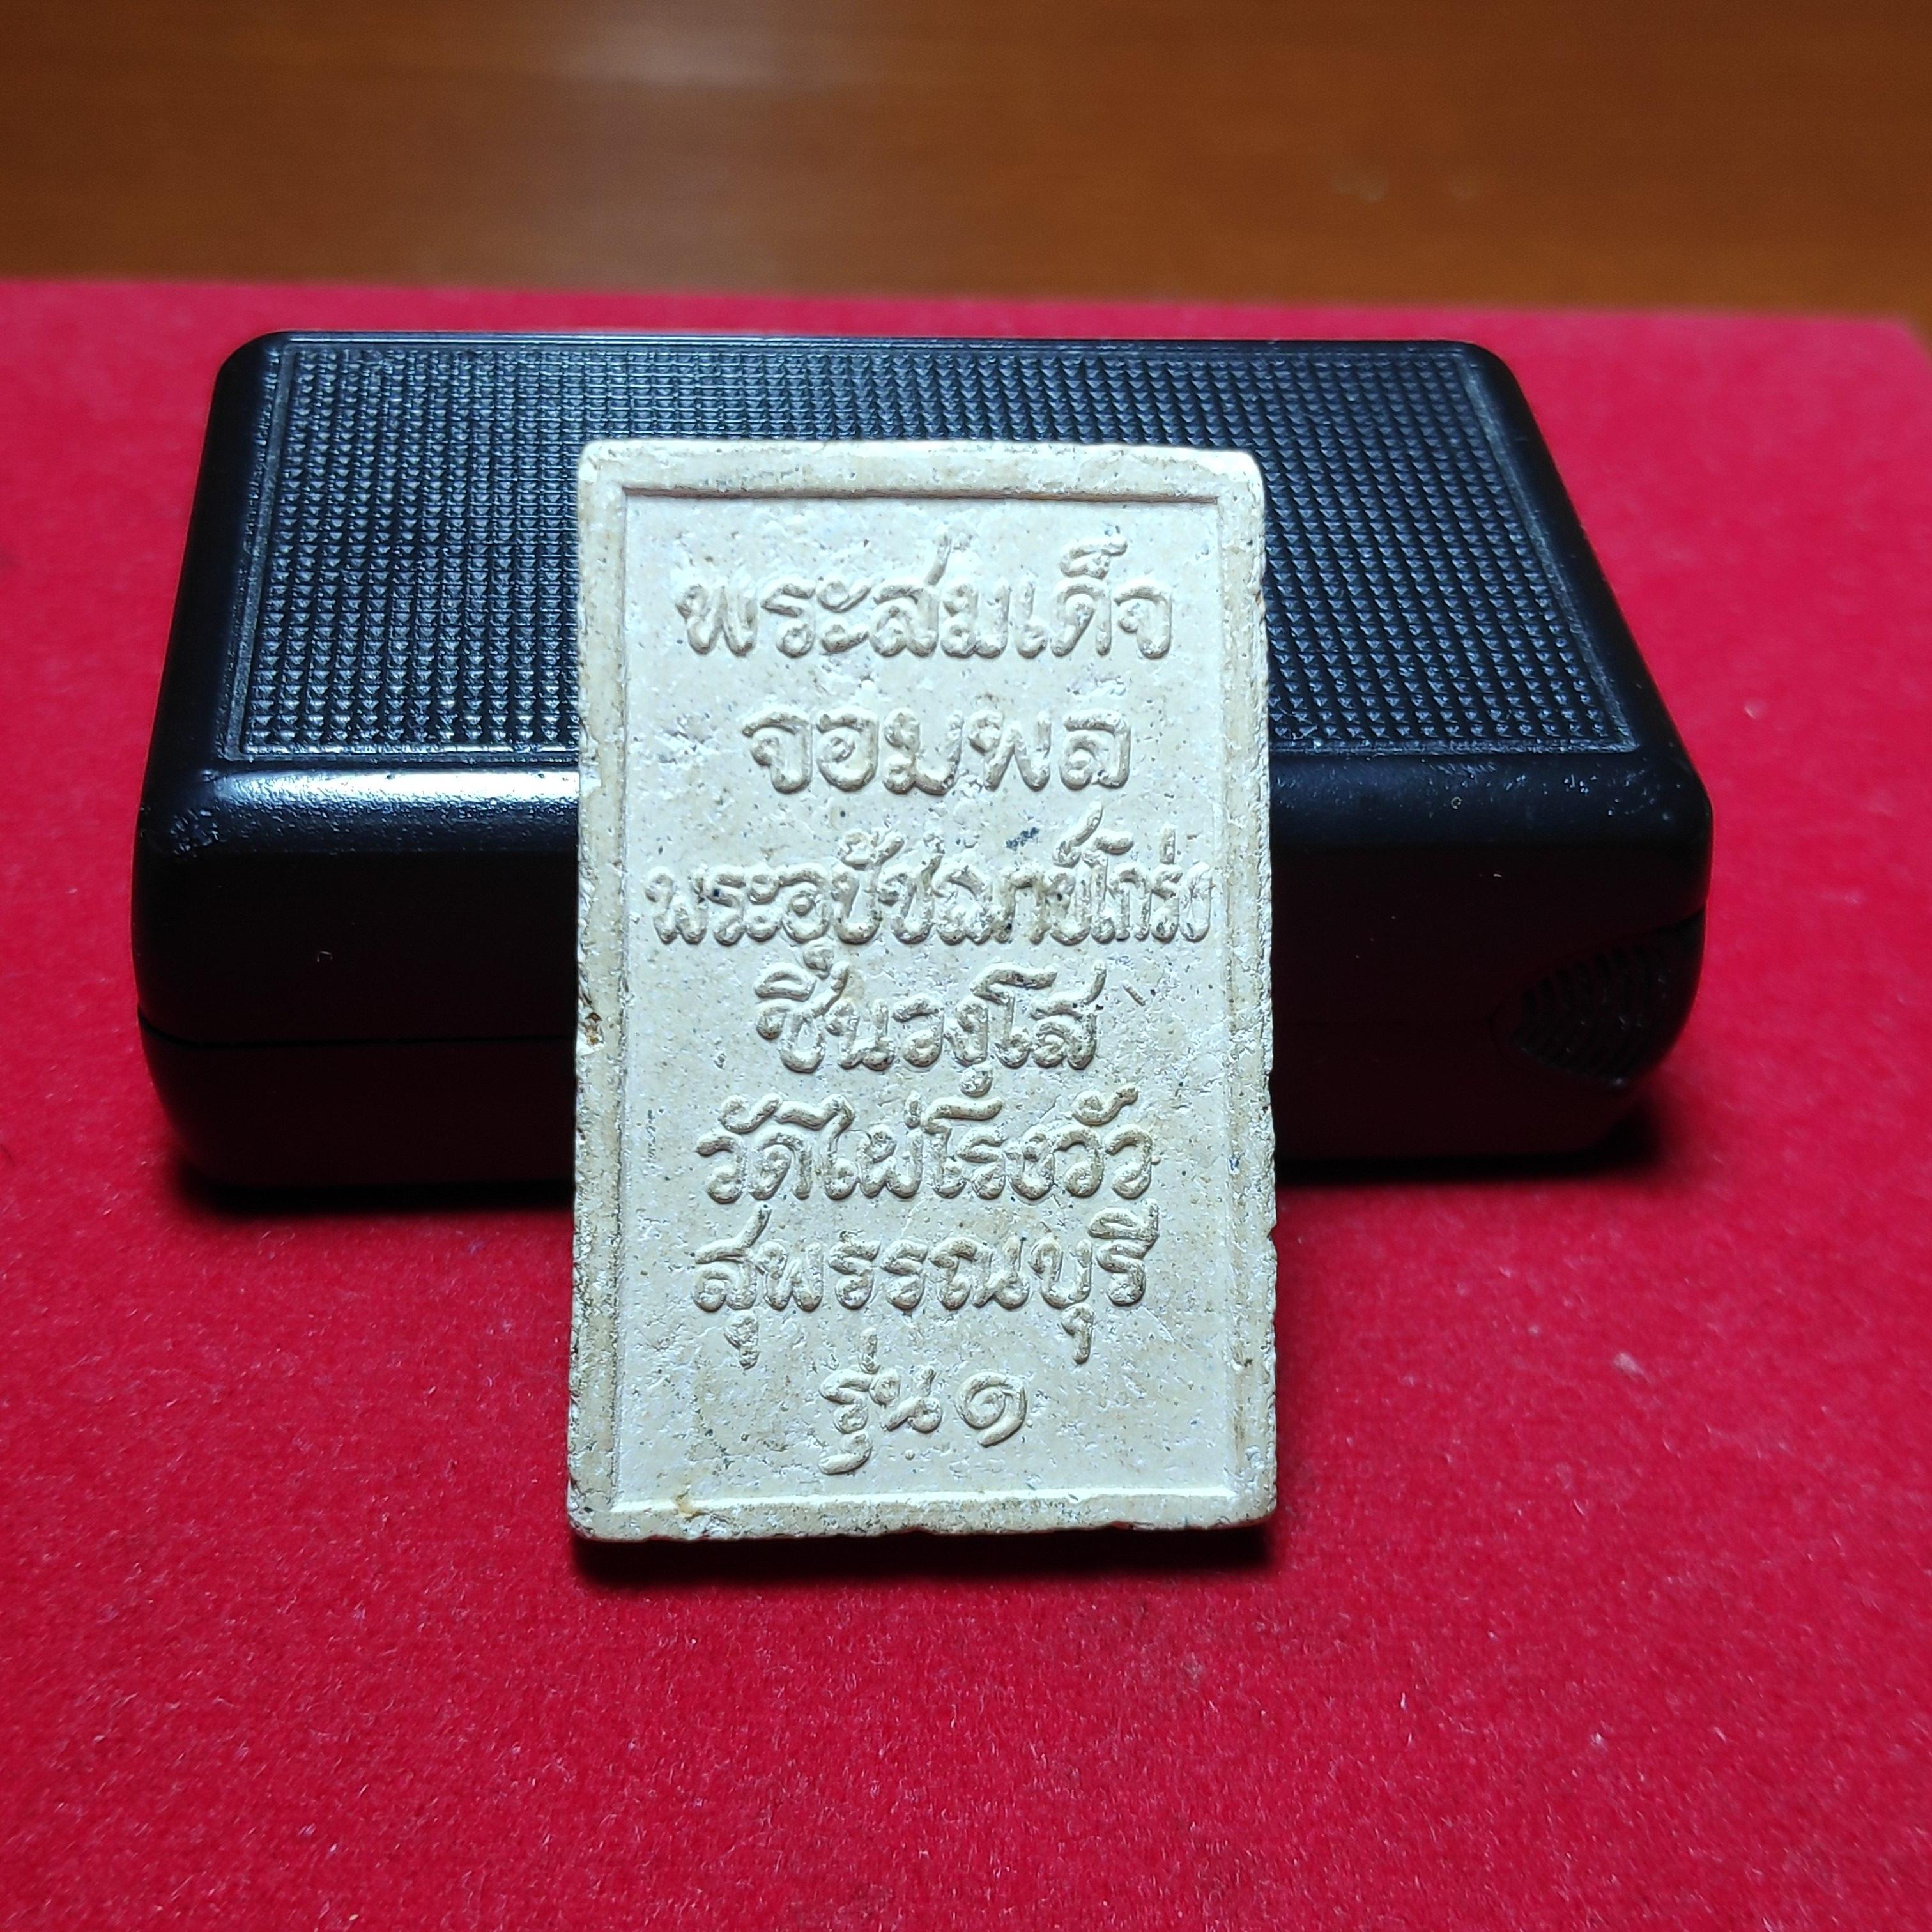 พระสมเด็จ
จอมพล
พระอุปัชฌาย์โกร่ง
ชินวงฺโส
วัดไผ่โรงวัว
สุพรรณบุรี
รุ่น ๑